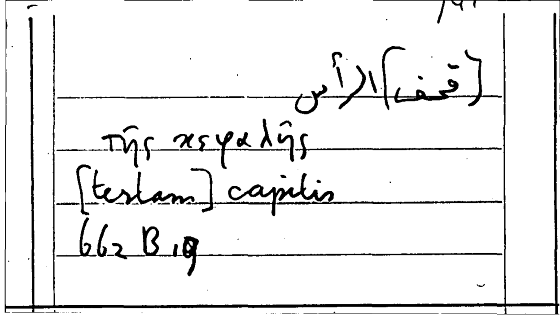 [قحف] الرأس
τῆς κεφαλῆς
[testam] capitis
662 B 19